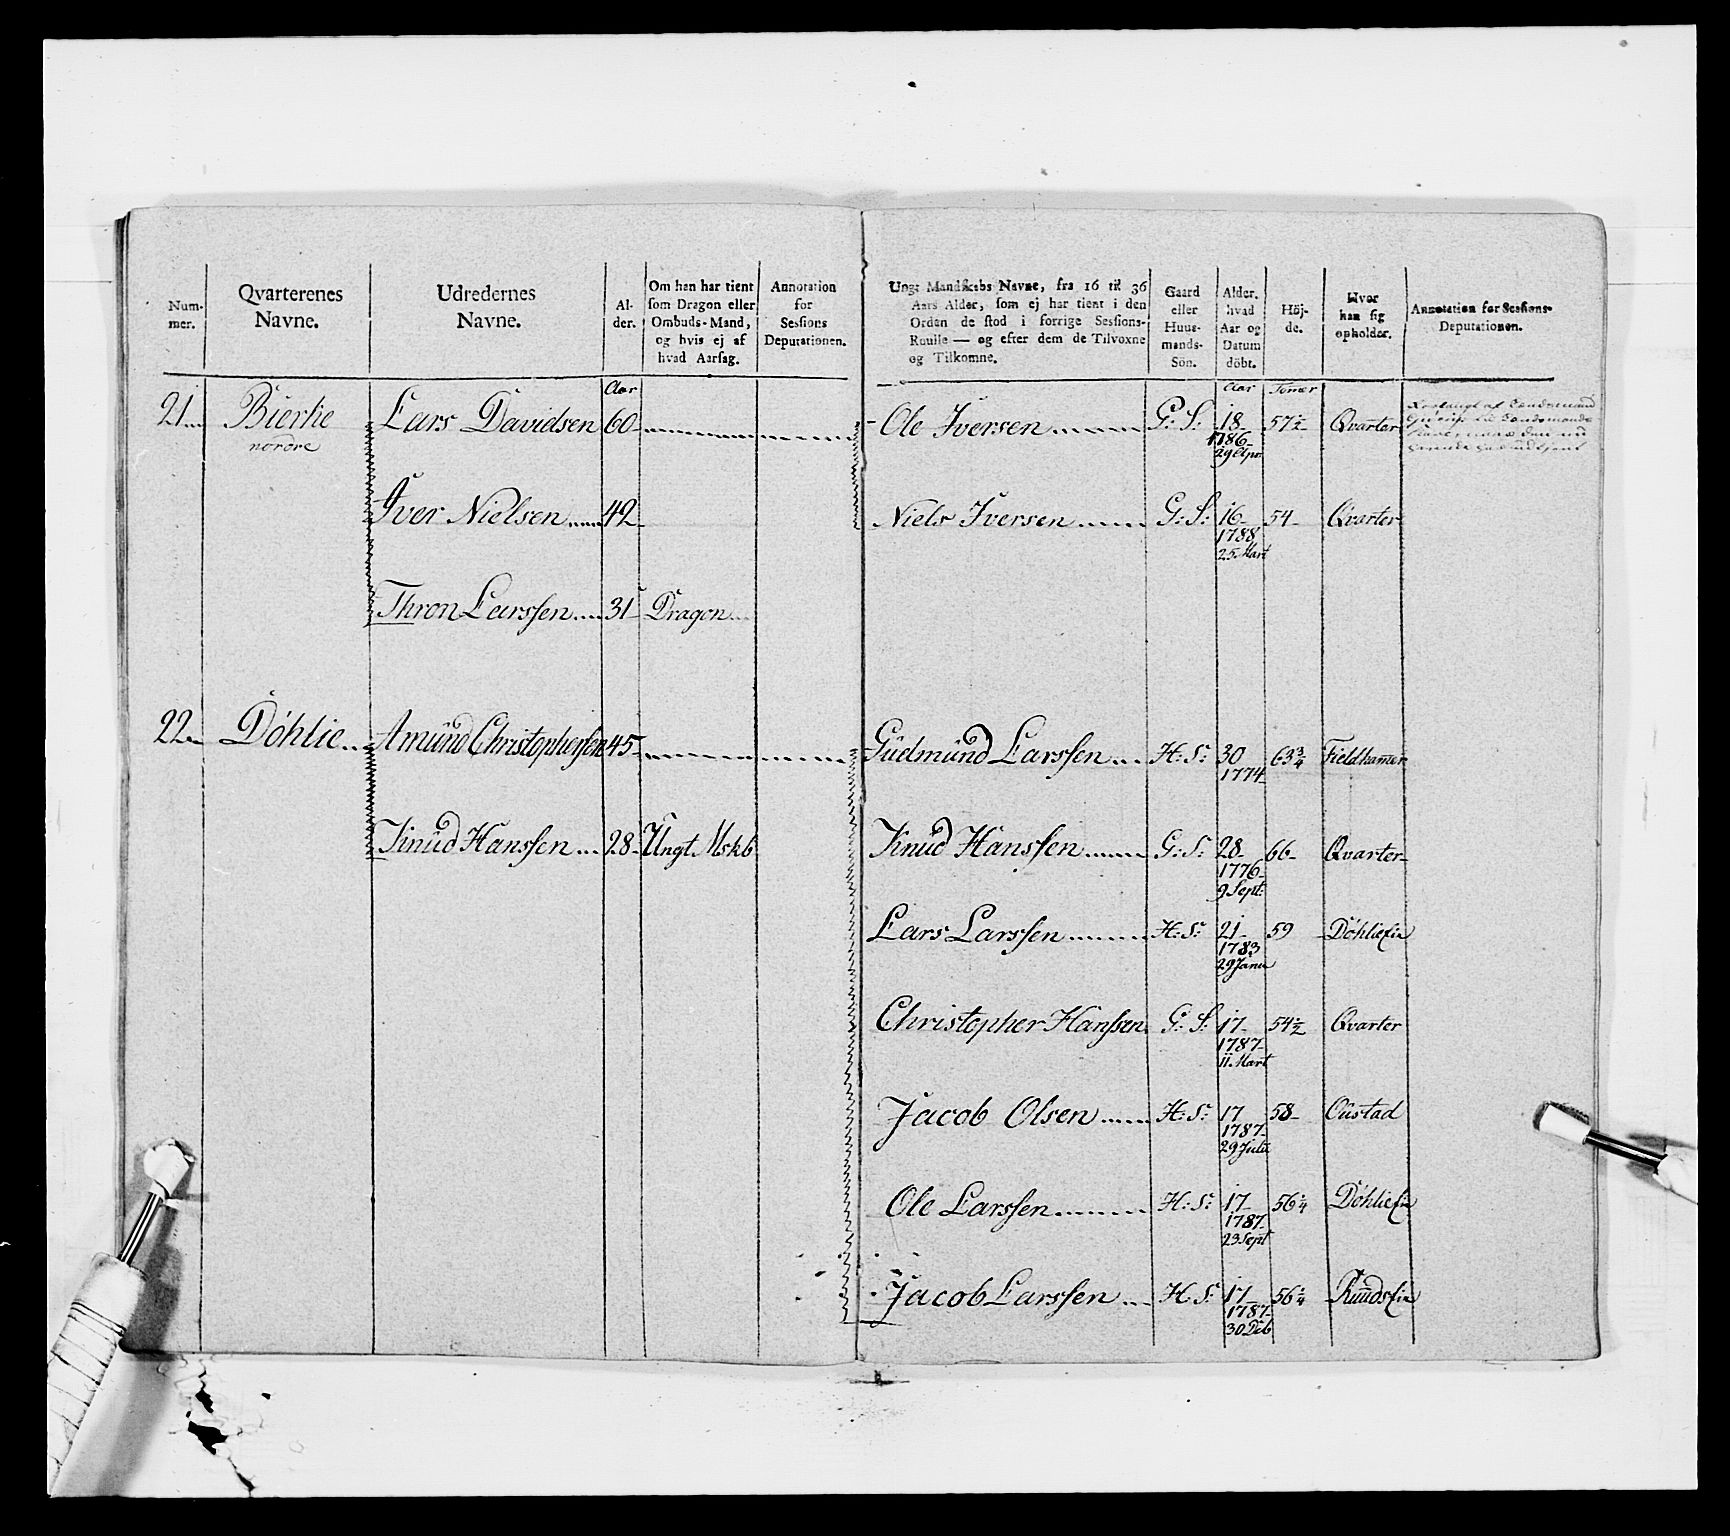 Num-
mer.
Qvarterenes
Navne.
Udredernes
Navne.
Al-
der.
Om han har tient
som Dragon eller
Ombuds-Mand,
og hvis ej af
hvad Aarsag.
Annotation
for
Sessions
Deputationen.
Aar
21 Bierke Lars Davidsen 60
nordre
Iver Nielsen 42
Thron Larssen 31 Dragon
22 Döhlie Amund Christophersen 45
Knud Hanssen 28 Ungt Mskb
Ungt Mandskabs Navne, fra 16 til 36
Aars Alder, som ej har tient i den
Orden de stod i forrige Sessions-
Roulle — og efter dem de Tilvoxne
og Tilkomne.
Gaard
eller
Huus-
mands-
Sön.
Alder.
hvad
Aar og
Datum
döbt.
Höj-
de.
Hvor
han sig
opholder.
Annotation for Sessions-
Deputationen.
Aar Tomer
Ole Iversen G: S: 18 57 1/2 Qvarter
1786
29
Niels Iversen G: S: 16 54 Qvarter
1788
25 Mart
Gudmund Larssen H: S: 30 63 3/4 Fieldhammer
1774
Knud Hanssen G: S: 28 66 Qvarter
1776
9 Sept:
Lars Larssen H: S: 21 59
1783
29 Janu
Christopher Hanssen G: S: 17 54 1/2 Qvarter
1787
11 Mart
Jacob Olsen H: S: 17 58 Oustad
1787
29 Julii
Ole Larssen H: S: 17 56 1/4
1787
23 Sept
Jacob Larssen H. S: 17 56 1/4
1787
30 Deb